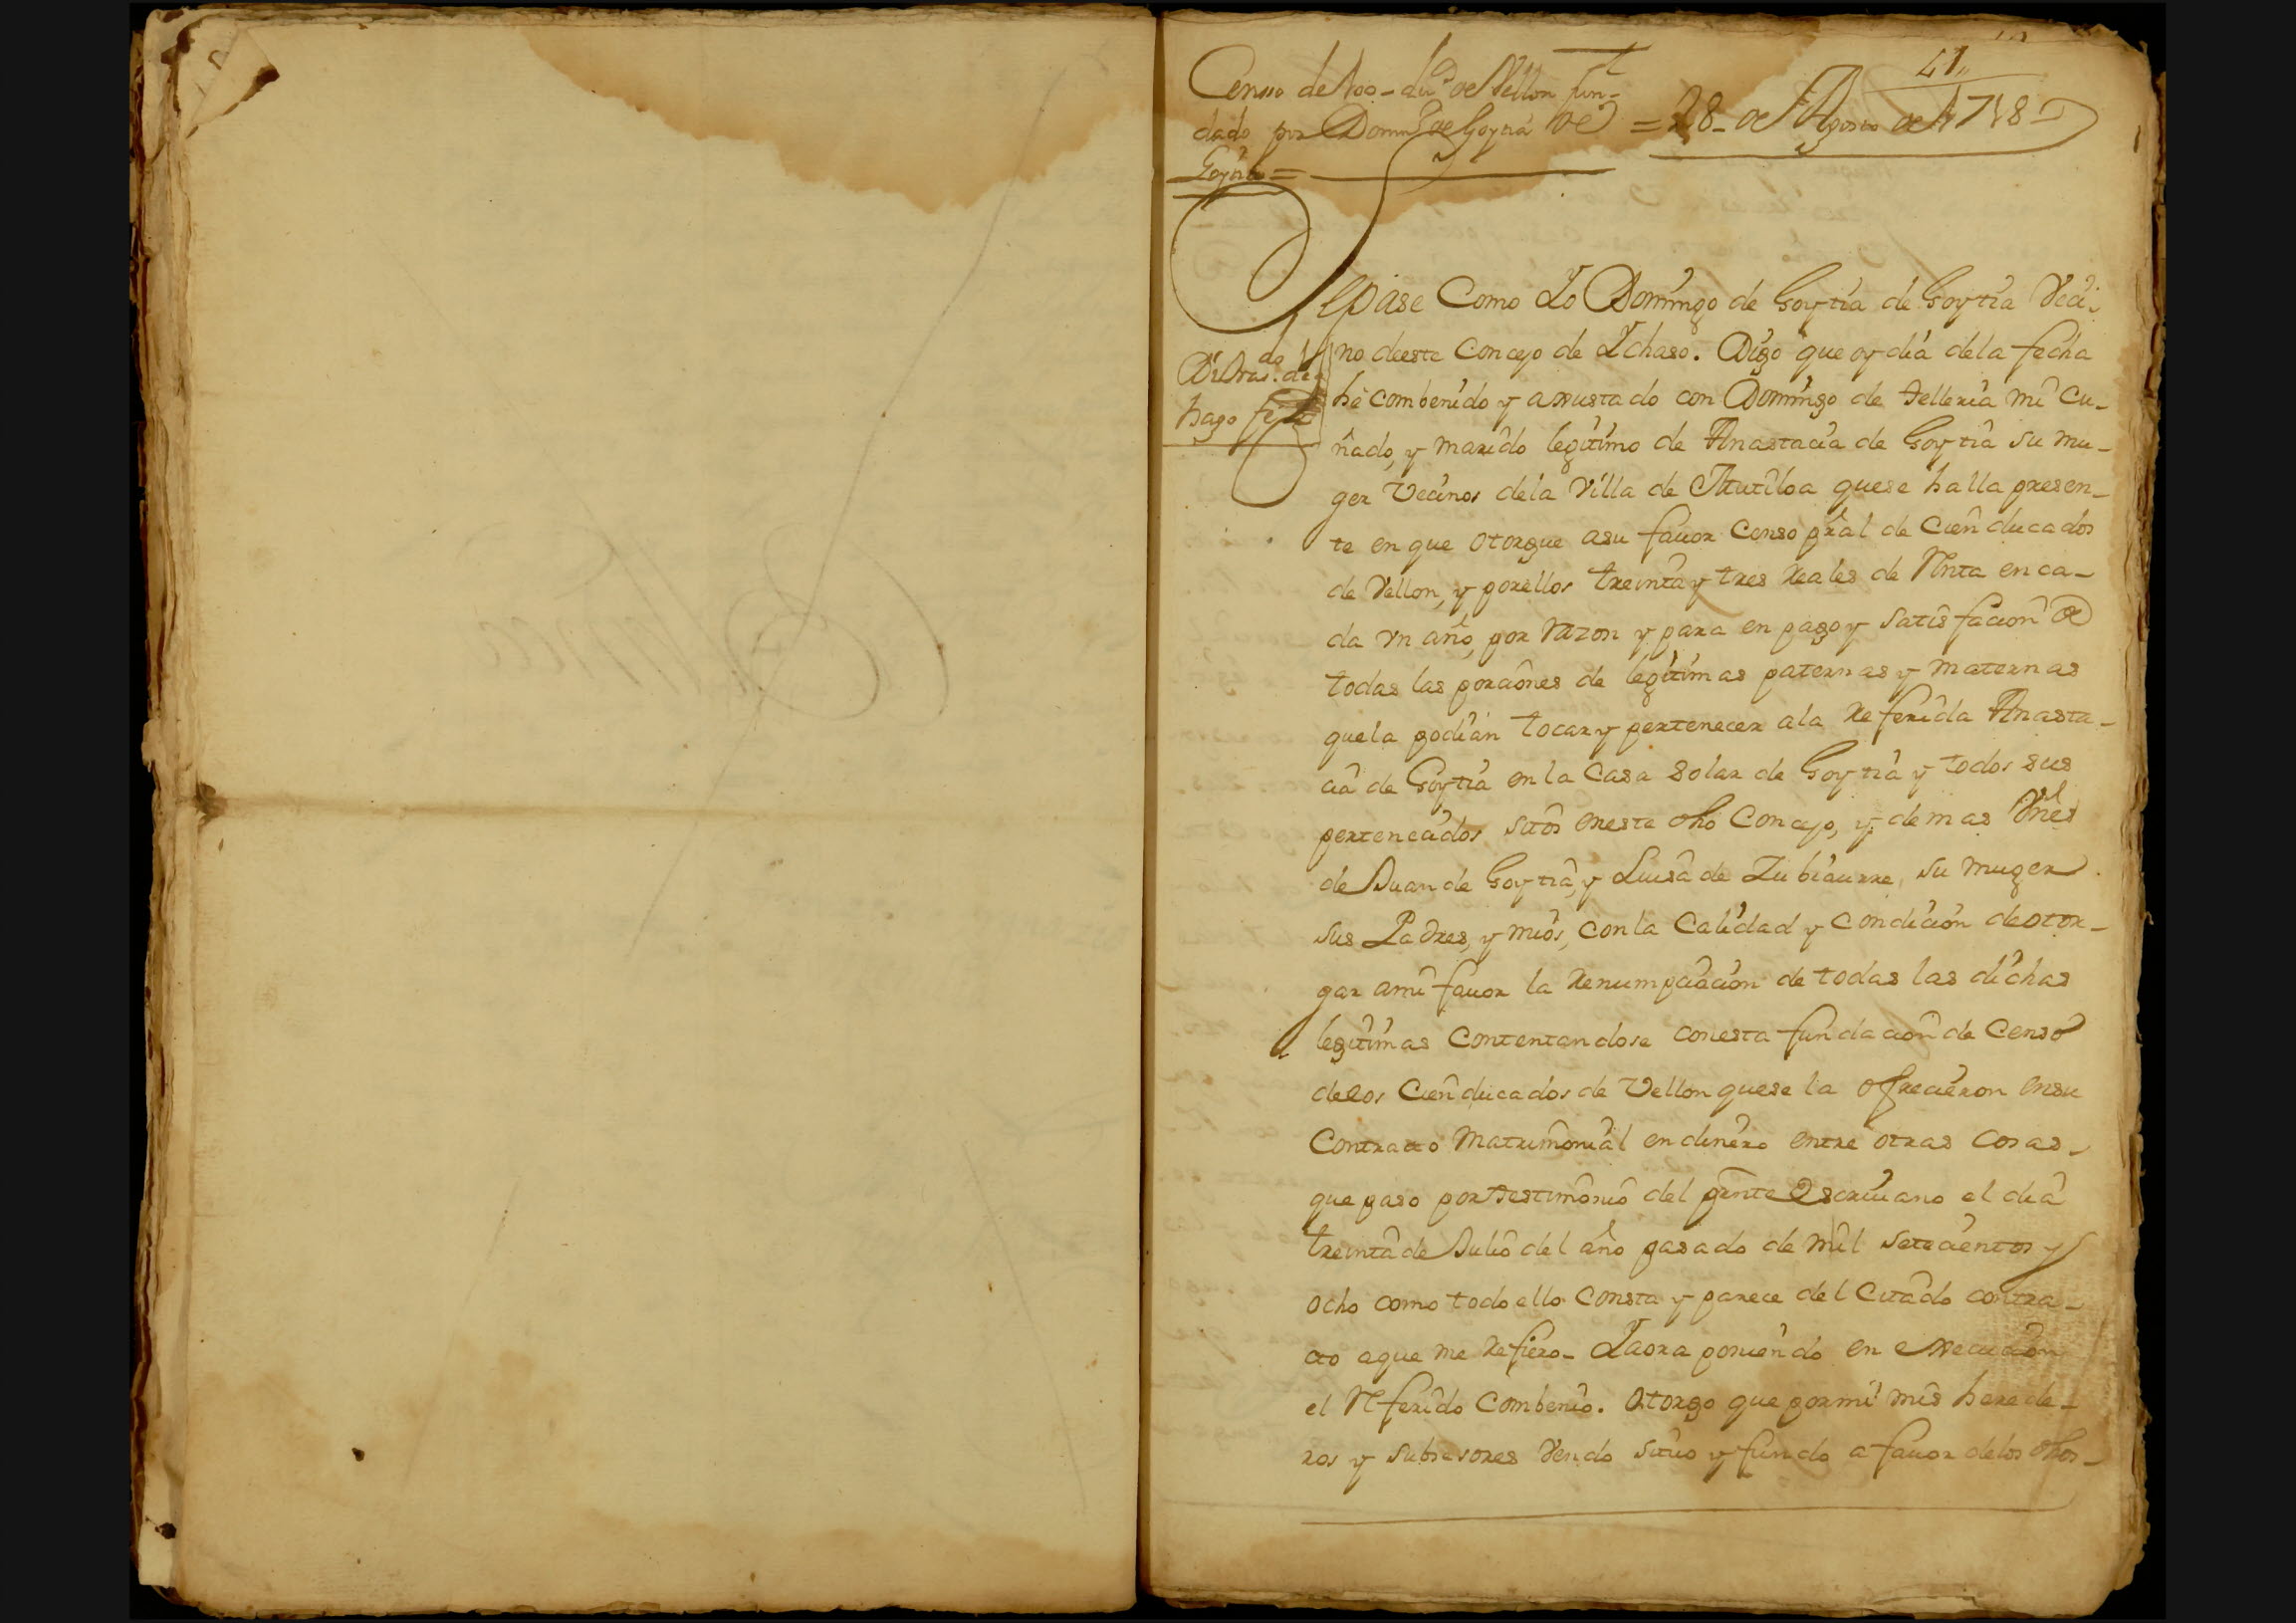 41,,
Censso de 100 - du.os de Vellon fun-
dado por Domingo de Goytia de
Goytia =
= 28 - de Agosto de 1718
Sepase Como Yo Domingo de Goytia de Goytia Veci-
no deeste Concejo de Ychaso. Digo que oy dia dela fecha
he combenido y axustado con Domingo de telleria mi Cu-
ñado, y marido legitimo de Anastacia de Goytia su mu-
ger Vecinos dela Villa de Mutiloa quese halla presen-
te en que otorgue asu fauor Censo pñal de Cien ducados
de Vellon, y porellos treinta y tres reales de Renta en ca-
da vn año, por razon y para en pago y satisfacion de
todas las porciones de legitimas paternas y maternas
quela podian tocar y pertenecer ala referida Anasta-
cia de Goytia en la Casa solar de Goytia y todos sus
pertenecidos sitos eneste dho Concejo, y demas Vnes
de Juan de Goytia, y Luisa de Zubiaurre, su muger
sus Padres, y mios, con la Calidad y Condicion deotor-
gar ami fauor la renumpciacion de todas las dichas
legitimas contentandose conesta fundacion de Censo
delos Cien ducados de Vellon quese la ofrecieron ensu
Contracto Matrimonial en dinero entre otras cosas -
que paso por testimonio del pnte Escriuano el dia
treinta de Julio del año pasado de mil setecientos y
ocho como todo ello consta y parece del citado contra-
cto aque me refiero - Yaora poniendo en execucion
el referido combenio. Otorgo que pormi mis herede-
ros y subcesores Vendo situo y fundo a fauor delos dhos -
do
hago fe